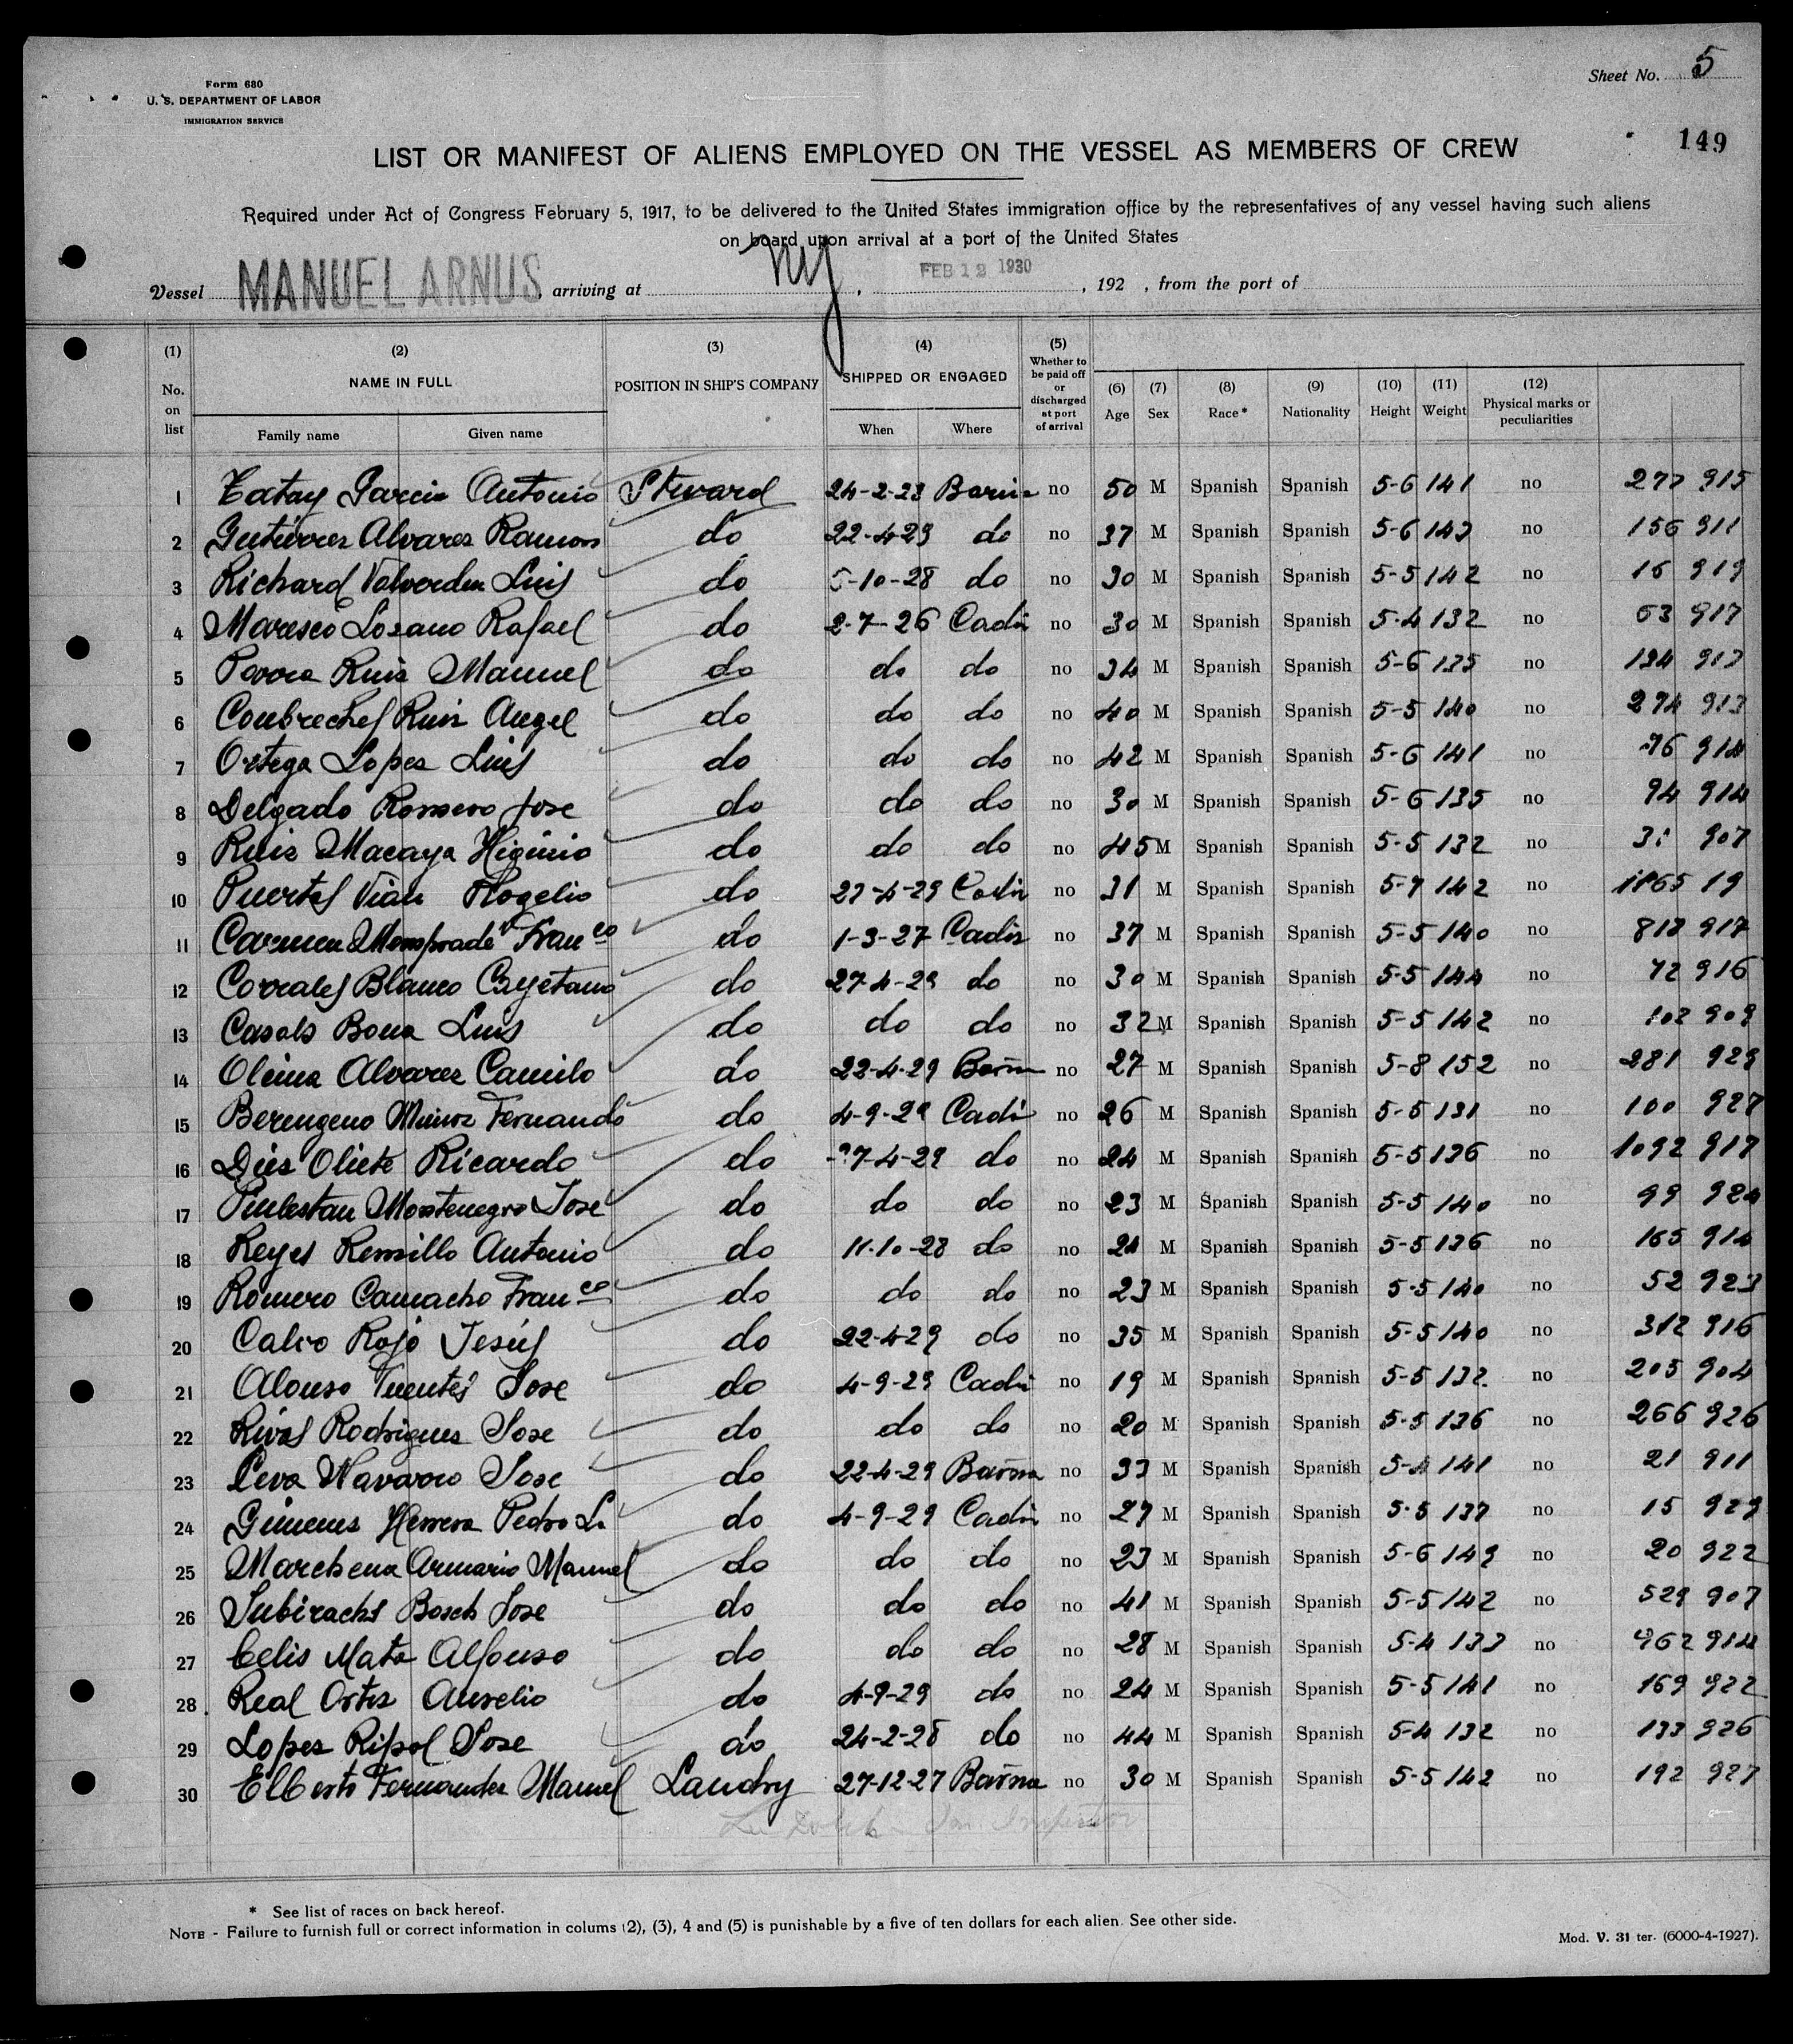 Form 680
U. S. DEPARTMENT OF LABOR
IMMIGRATION SERVICE
Sheet No. 5
149
LIST OR MANIFEST OF ALIENS EMPLOYED ON THE VESSEL AS MEMBERS OF CREW
Required under Act of Congress February 5, 1917, to be delivered to the United States immigration office by the representatives of any vessel having such aliens
on board upon arrival at a port of the United States
Vessel MANUEL ARNUS, arriving at NY, FEB 12 1930, 192 , from the port of
(1) No. on list
(2) NAME IN FULL
Family name Given name
(3) POSITION IN SHIP'S COMPANY
(4) SHIPPED OR ENGAGED
When Where
(5) Whether to be paid off or discharged at port of arrival
(6) Age (7) Sex (8) Race * (9) Nationality (10) Height (11) Weight (12) Physical marks or peculiarities
1 Garcia Antonio no 50 M Spanish Spanish 5-6 141 no 277 915
2 Alvarez Ramon do 22-4-29 do no 37 M Spanish Spanish 5-6 143 no 156 911
3 Richard Luis do 5-10-28 do no 30 M Spanish Spanish 5-5 142 no 16 919
4 Lozano Rafael do 2-7-26 no 30 M Spanish Spanish 5-4 132 no 63 917
5 Ruiz Manuel do do do no 34 M Spanish Spanish 5-6 135 no 913
6 Ruiz Angel do do do no 40 M Spanish Spanish 5-5 140 no 274 913
7 Ortega Lopez Luis do do do no 42 M Spanish Spanish 5-6 141 no 76 914
8 Delgado Romero Jose do do do no 30 M Spanish Spanish 5-6 135 no 94 914
9 Ruiz Macaya Higinio do do do no 45 M Spanish Spanish 5-5 132 no 907
10 Puertas Rogelio do no 31 M Spanish Spanish 5-7 142 no 19
11 Carmen Franco do 1-3-27 Cadiz no 37 M Spanish Spanish 5-5 140 no 917
12 Corrales Blanco Cayetano do 27-4-29 do no 30 M Spanish Spanish 5-5 144 no 72 916
13 Casals Luis do do do no 32 M Spanish Spanish 5-5 142 no 102 909
14 Alvarez Camilo do 22-4-29 no 27 M Spanish Spanish 5-8 152 no 281 929
15 Berengeno Fernando do 4-9-29 no 26 M Spanish Spanish 5-5 131 no 100 927
16 Oliete Ricardo do do no 24 M Spanish Spanish 5-5 136 no 1092 917
17 Montenegro Jose do do do no 23 M Spanish Spanish 5-5 140 no 99 924
18 Reyes Antonio do 11-10-28 do no M Spanish Spanish 5-5 136 no 165 914
19 Romero Camacho Franco do do do no 23 M Spanish Spanish 5-5 140 no 52 923
20 Calvo Rojo Jesús do 22-4-29 do no 35 M Spanish Spanish 5-5 140 no 312 916
21 Alonso Fuentes Jose do 4-9-29 no 19 M Spanish Spanish 5-5 132 no 205 904
22 Rivas Rodrigues Jose do do do no 20 M Spanish Spanish 5-5 136 no 266 926
23 Navarro Jose do 22-4-29 Barna no 33 M Spanish Spanish 5-4 141 no 21 911
24 Herrera Pedro do 4-9-29 no M Spanish Spanish 5-5 137 no 15 929
25 Marchena Armario Manuel do do do no 23 M Spanish Spanish 5-6 149 no 20 922
26 Subirachs Bosch Jose do do do no 41 M Spanish Spanish 5-5 142 no 529 907
27 Celis Mata Alfonso do do do no 28 M Spanish Spanish 5-4 133 no 914
28 Real Ortiz Aurelio do 4-9-29 do no 24 M Spanish Spanish 5-5 141 no 169 922
29 Lopez Ripol Jose do 24-2-28 do no 44 M Spanish Spanish 5-4 132 no 133 926
30 Manuel Landry 27-12-27 Barna no 30 M Spanish Spanish 5-5 142 no 192 927
* See list of races on back hereof.
NOTE - Failure to furnish full or correct information in colums (2), (3), 4 and (5) is punishable by a five of ten dollars for each alien. See other side.
Mod. V. 31 ter. (6000-4-1927).